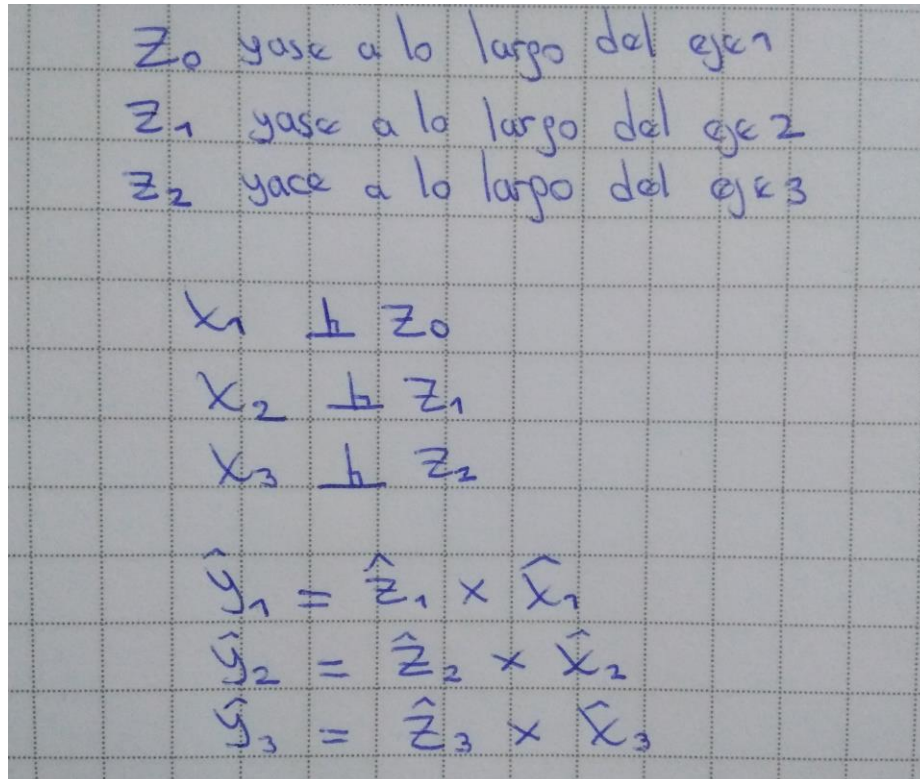 Z₀ yase a lo largo del eje1
Z₁ yase a lo largo del eje 2
Z₂ yace a lo largo del eje 3
X₁ ⊥ Z₀
X₂ ⊥ Z₁
X₃ ⊥ Z₂
ŷ₁ = ẑ₁ × x̂₁
ŷ₂ = ẑ₂ × x̂₂
ŷ₃ = ẑ₃ × x̂₃